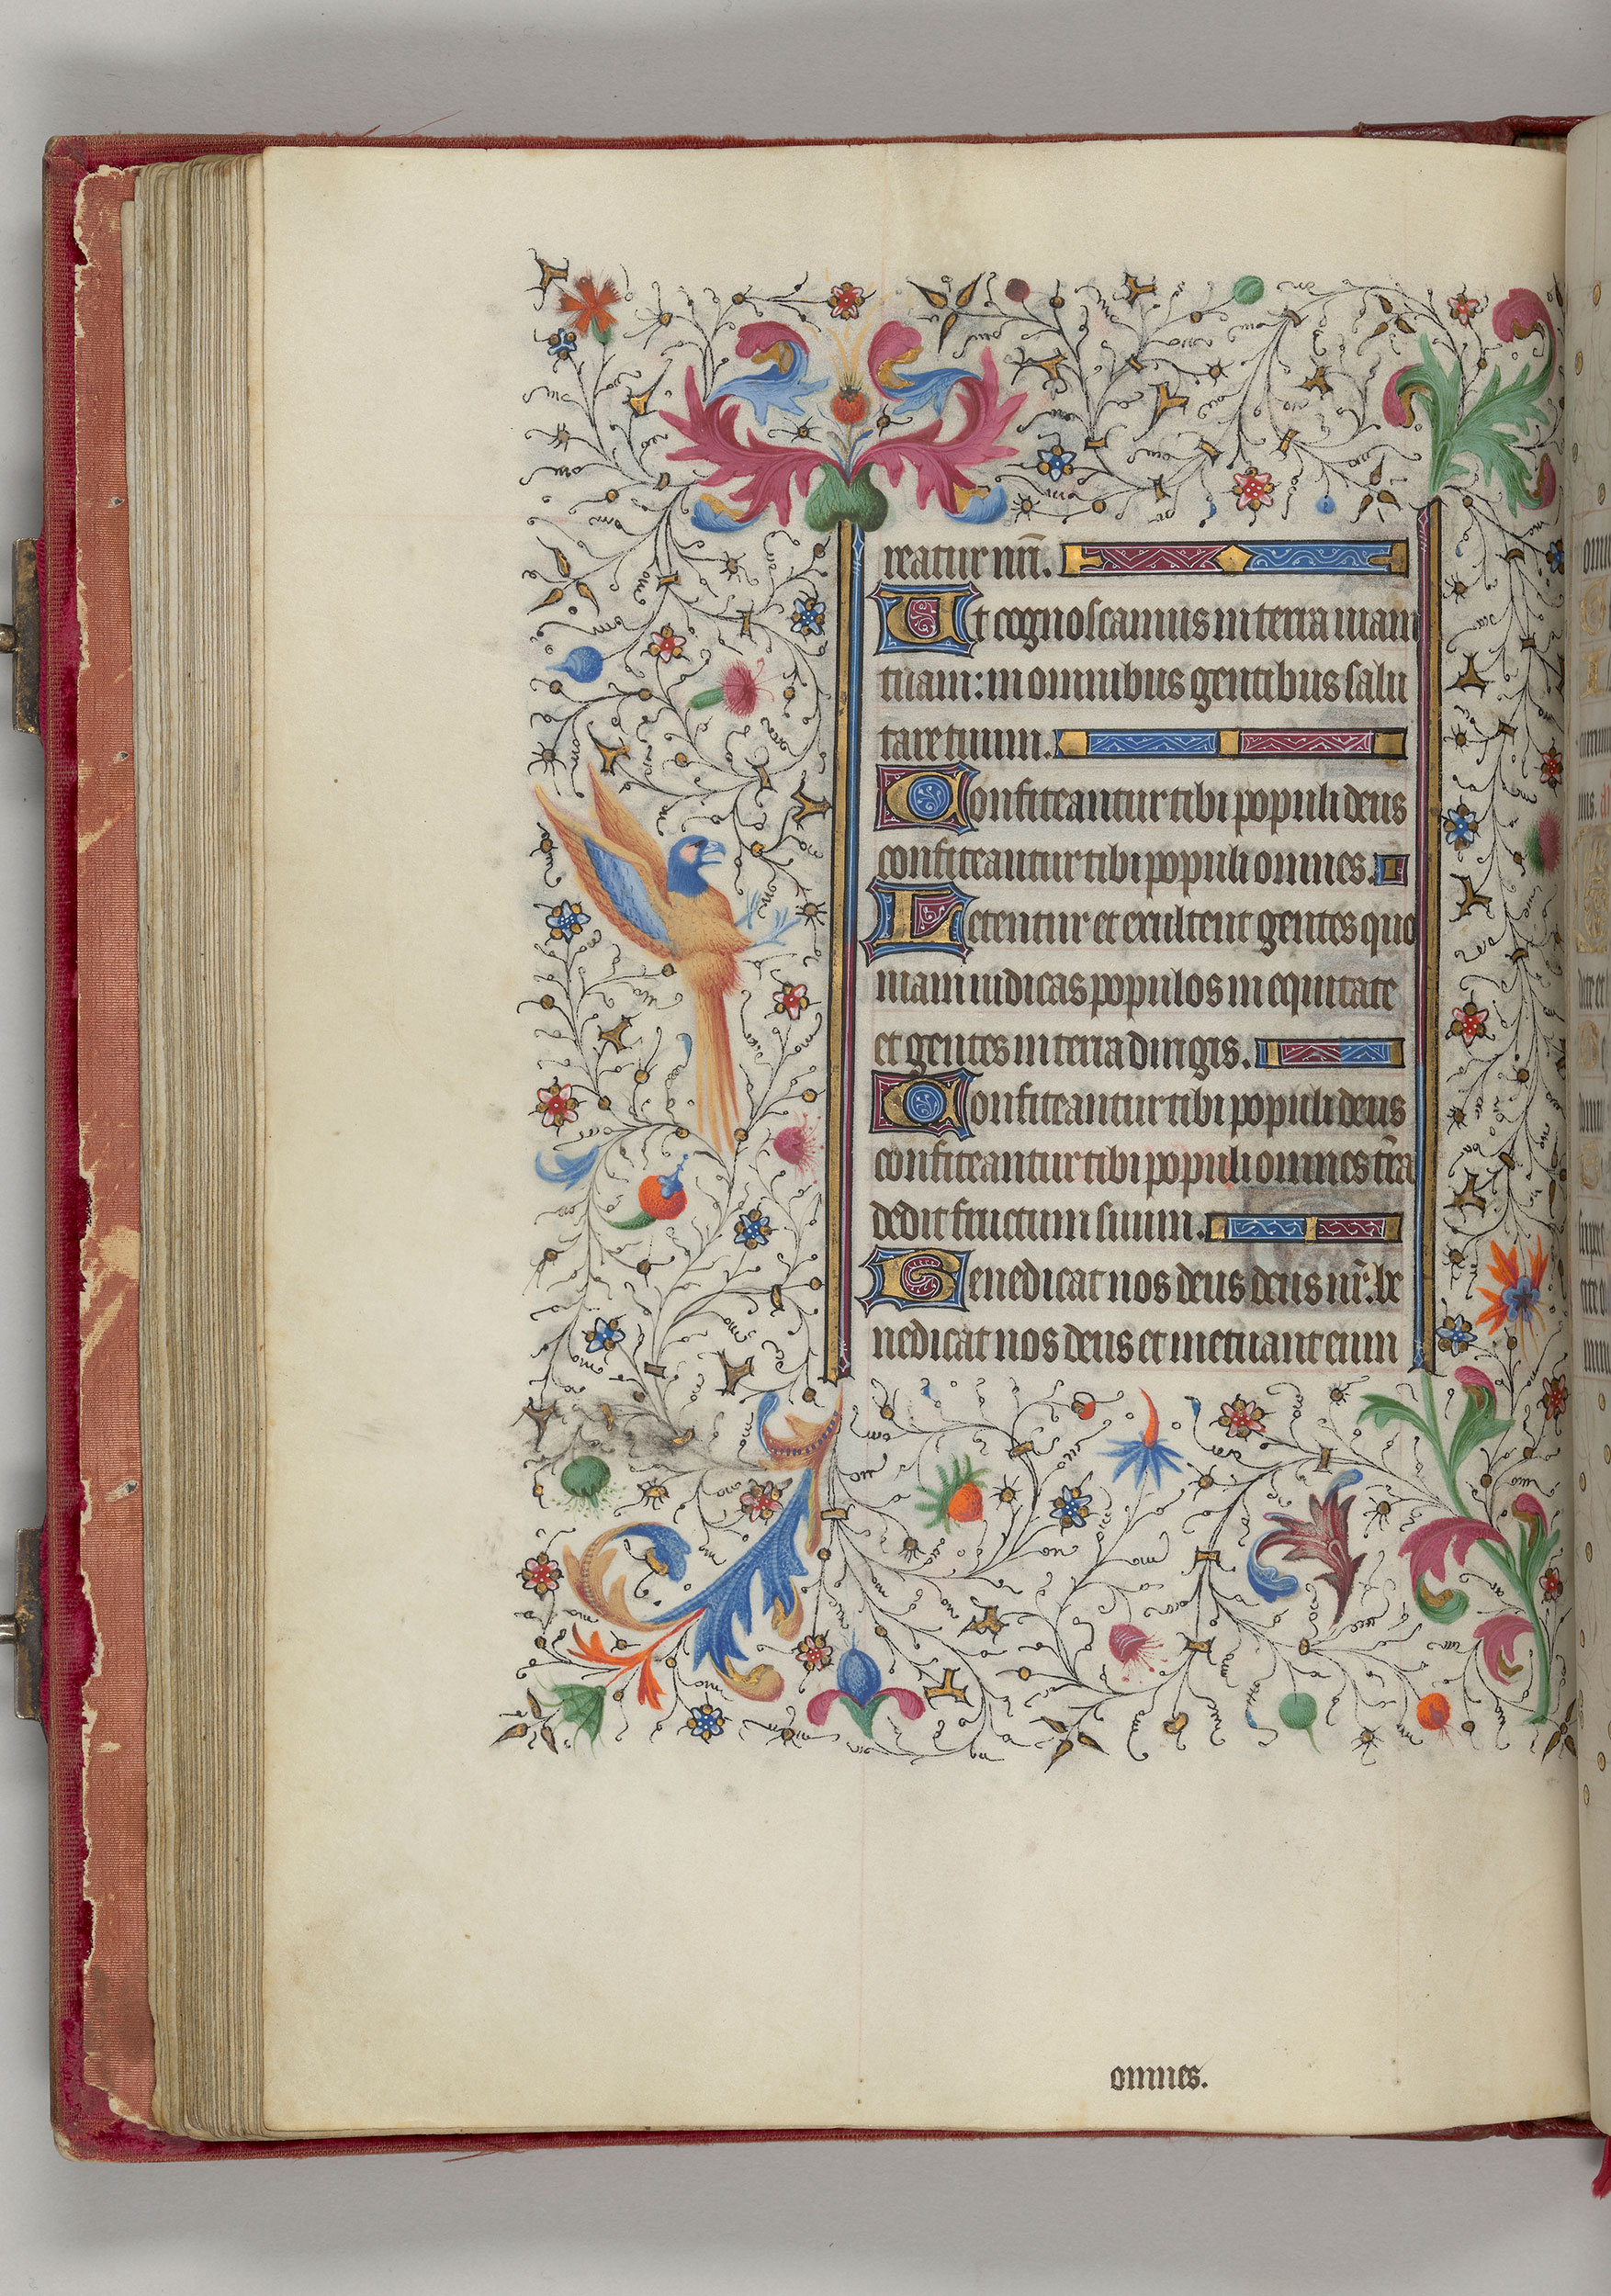 reatur nr̄i.
Ut cognoscamus in terra uiam
tuam: in omnibus gentibus salu
tare tuum.
Confiteantur tibi populi deus
confiteantur tibi populi omnes.
Letentur et exultent gentes quo
niam iudicas populos in equitate
et gentes in terra dirigis.
Confiteantur tibi populi deus
confiteantur tibi populi omnes tr̄a
dedit fructum suum.
Benedicat nos deus deus nr̄: be
nedicat nos deus et metuant eum
omnes.